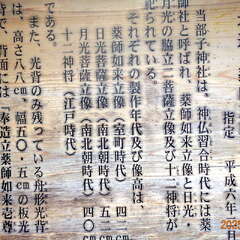 指定 平成六年
当部子神社は、神仏習合時代には薬
師社と呼ばれ、薬師如来立像と日光・
月光の脇立二菩薩立像及び十二神将が
祀られている。
それぞれの製作年代及び像高は、
薬師如来立像(室町時代) 四〇cm
日光菩薩立像(南北朝時代) 五二cm
月光菩薩立像(南北朝時代) 四〇cm
十二神将(江戸時代)
である。
また、光背のみ残っている舟形光背
は、高さ八八cm、幅五〇・五cmの板光
背で、背面には「奉造立薬師如来壱尊